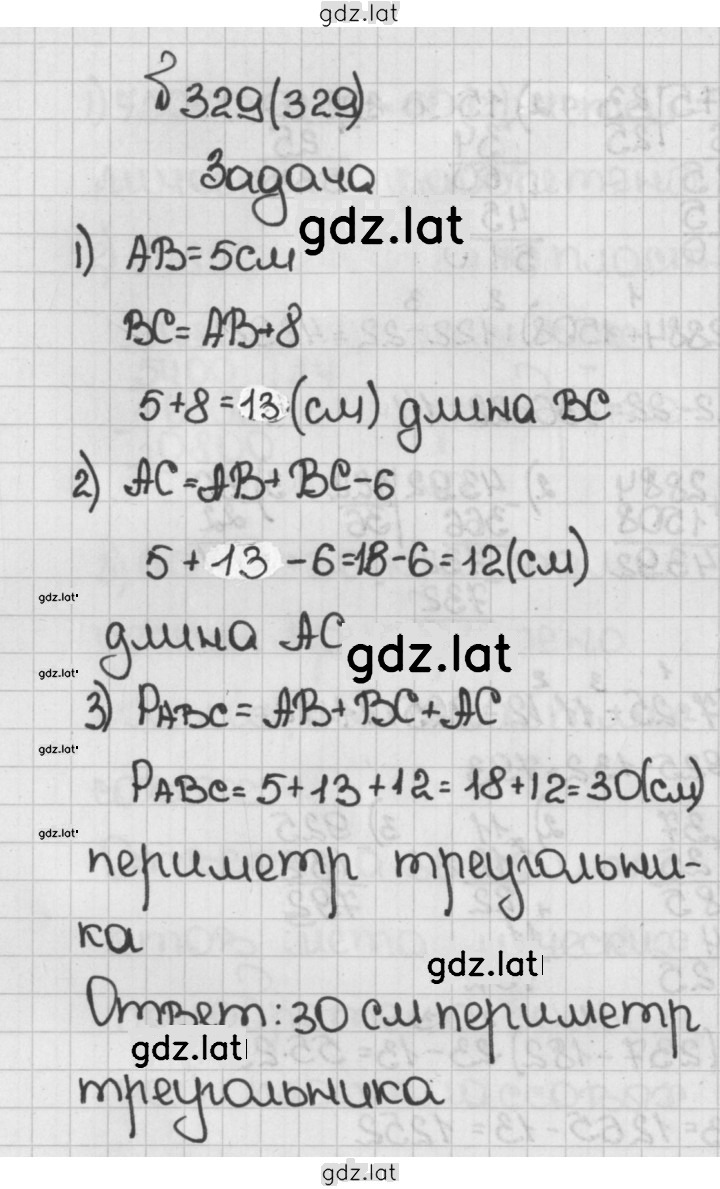 gdz.lat
329(329)
Задача
gdz.lat
1) AB=5см
BC=AB+8
5+8=13(см) длина BC
2) AC=AB+BC-6
5+13-6=18-6=12(см)
gdz.lat
длина AC
gdz.lat
gdz.lat
3) PABC=AB+BC+AC
gdz.lat
PABC=5+13+12=18+12=30(см)
gdz.lat
периметр треугольни-
ка
gdz.lat
Ответ: 30 см периметр
gdz.lat
треугольника
gdz.lat